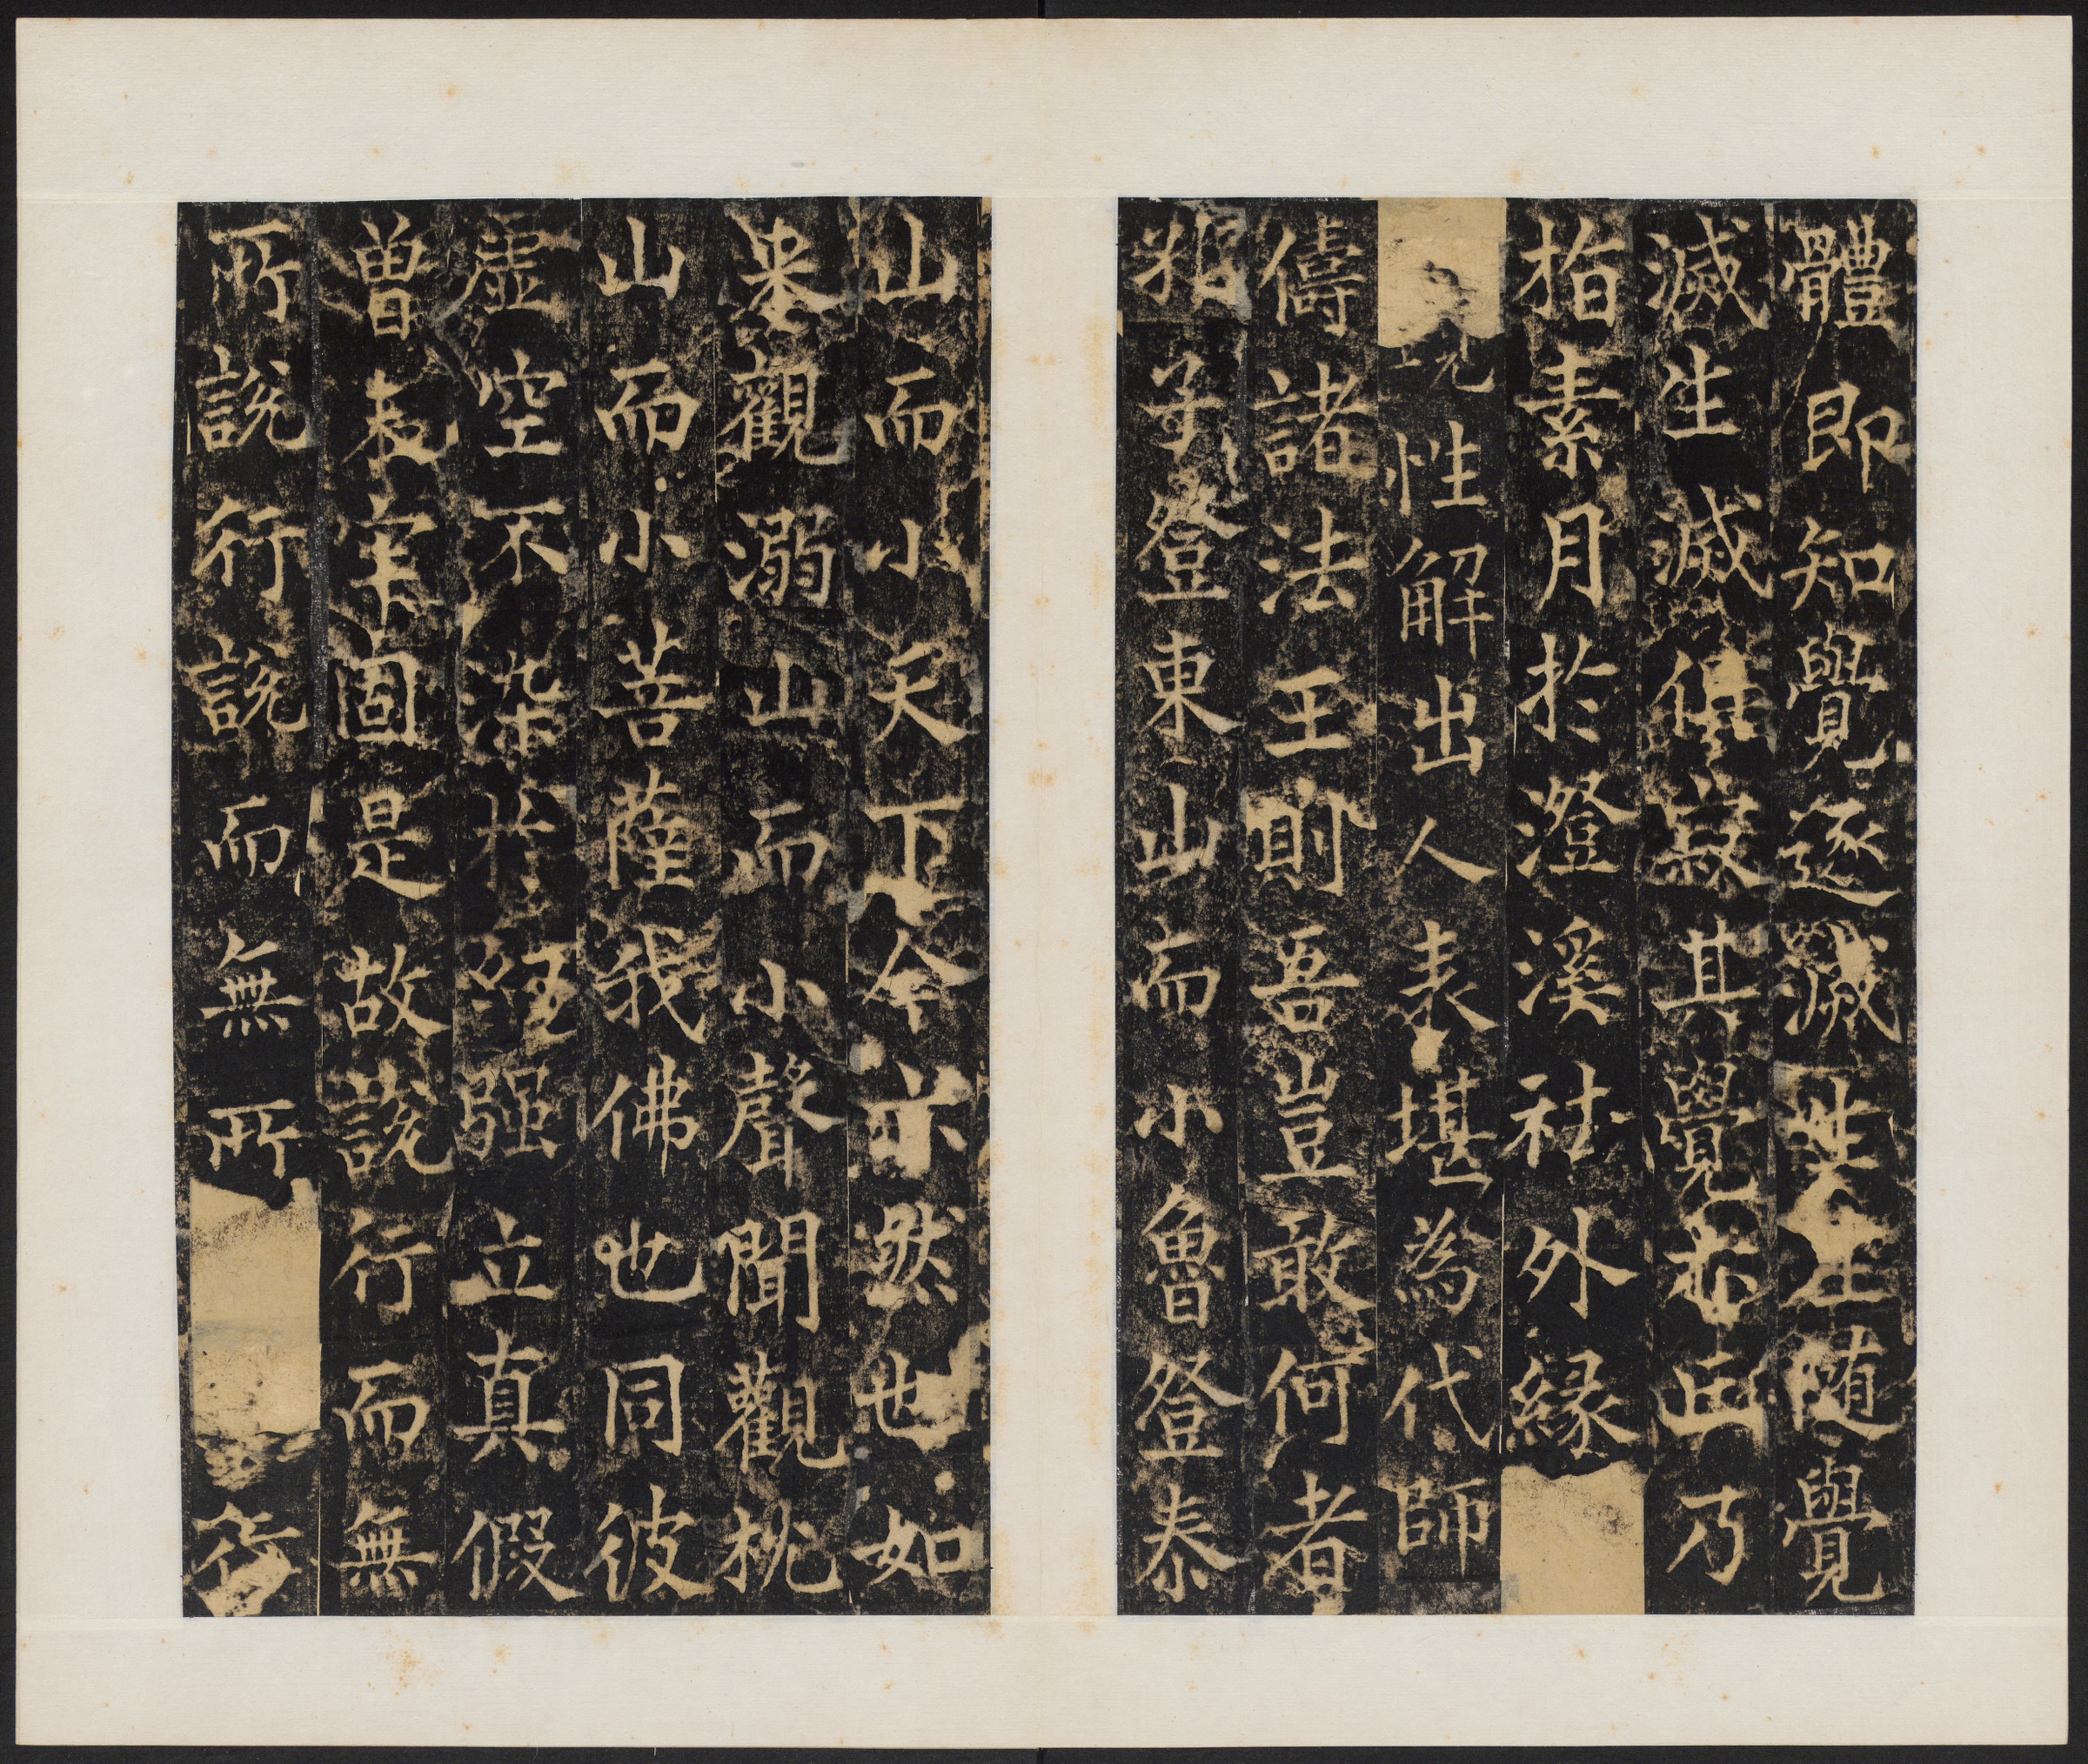 體即知覺逐滅生生隨覺
滅生滅俱寂其覺亦正乃
指素月於澄溪祛外緣
現性解出人表堪為代師
儔諸法王則吾豈敢何者
邾子登東山而小魯登泰
山而小天下今亦然也如
觀溺山而小聲聞觀桃
山而小菩薩我佛也同彼
虛空不染於經強立真假
曾未牢固是故說行而無
所說行說而無所行